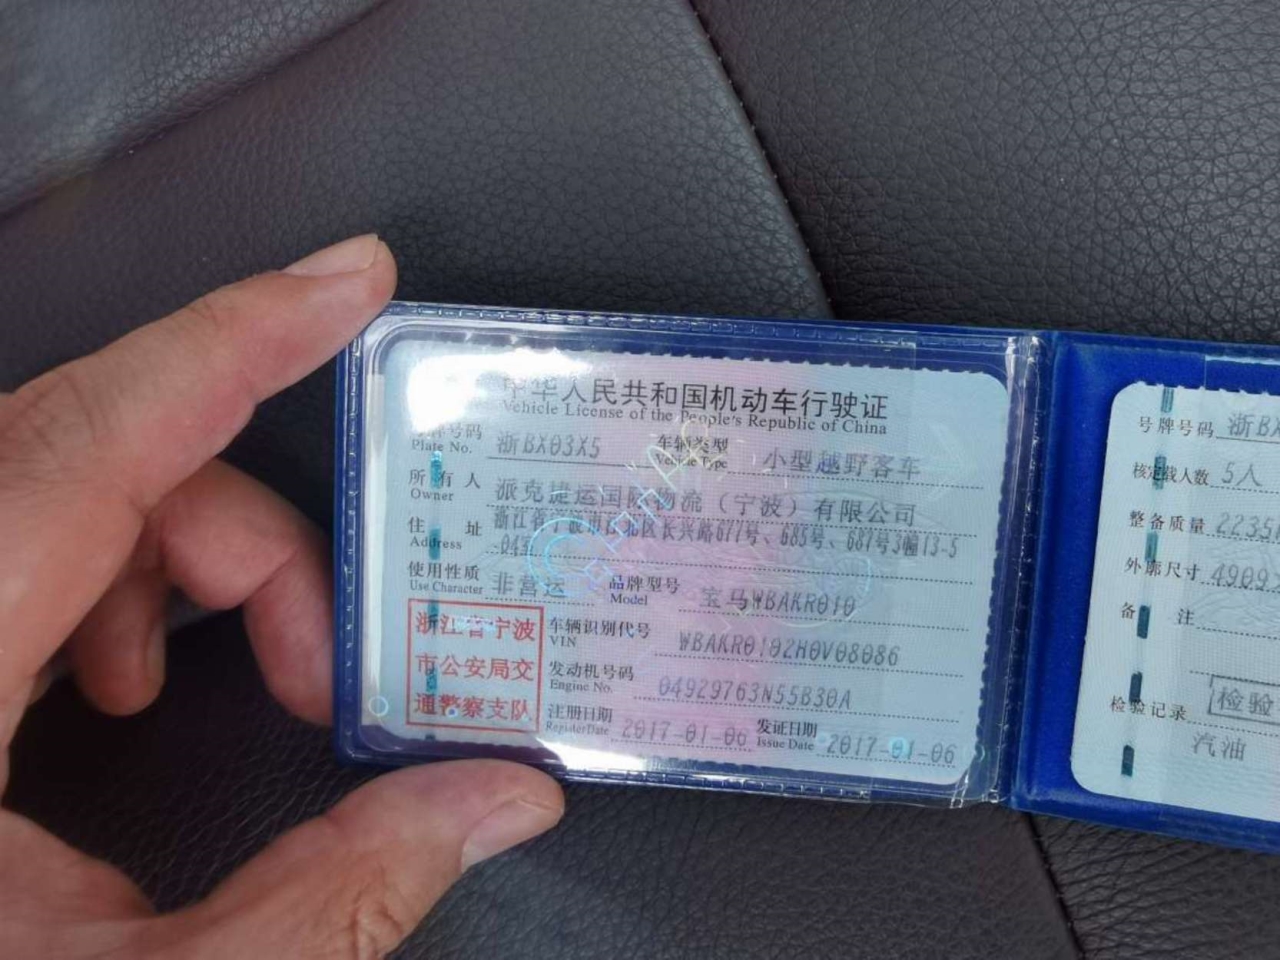 中华人民共和国机动车行驶证
Vehicle License of the People's Republic of China
号牌号码 浙BX03X5 车辆类型 小型越野客车
Plate No. Vehicle Type
所有人 派克捷运国际物流（宁波）有限公司
Owner
住址 浙江省宁波市江北区长兴路677号、685号、687号3幢13-5
Address 04室
使用性质 非营运 品牌型号 宝马WBAKR010
Use Character Model
浙江省宁波
市公安局交
通警察支队
车辆识别代号 WBAKR0102H0V08086
VIN
发动机号码 04929763N55B30A
Engine No.
注册日期 2017-01-06 发证日期 2017-01-06
Register Date Issue Date
号牌号码 浙BX
核定载人数 5人
整备质量 2235
外廓尺寸 4909
备注
检验记录 检验
汽油